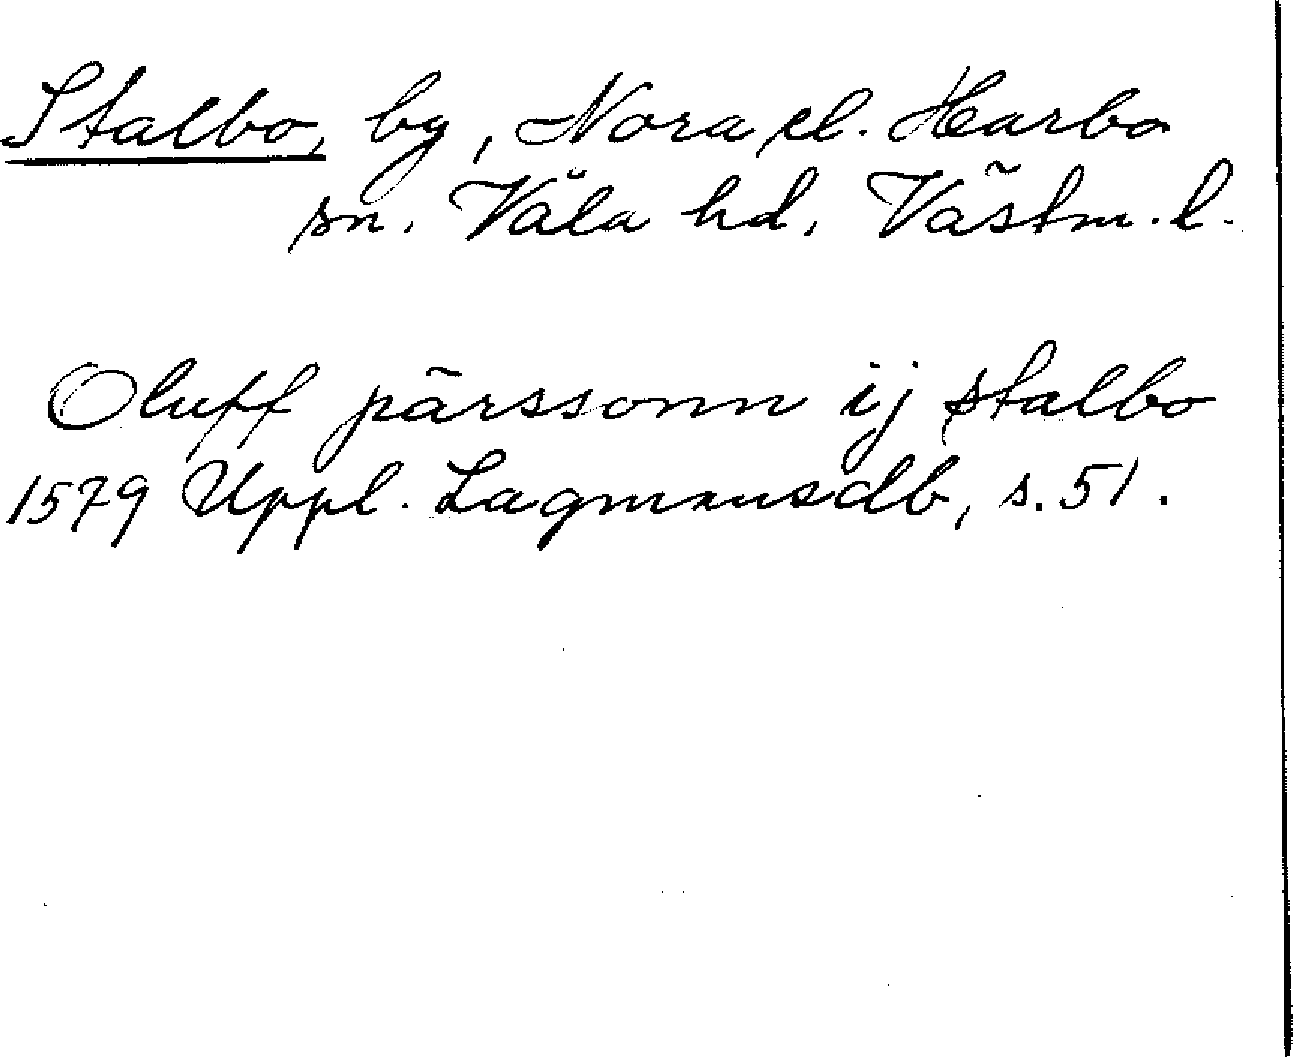 Stalbo, by, Nora el. Harbo
sn. Våla hd, Västm. l.
Oluff pärssonn ij stalbo
1579 Uppl. Lagmansdb, s. 51.